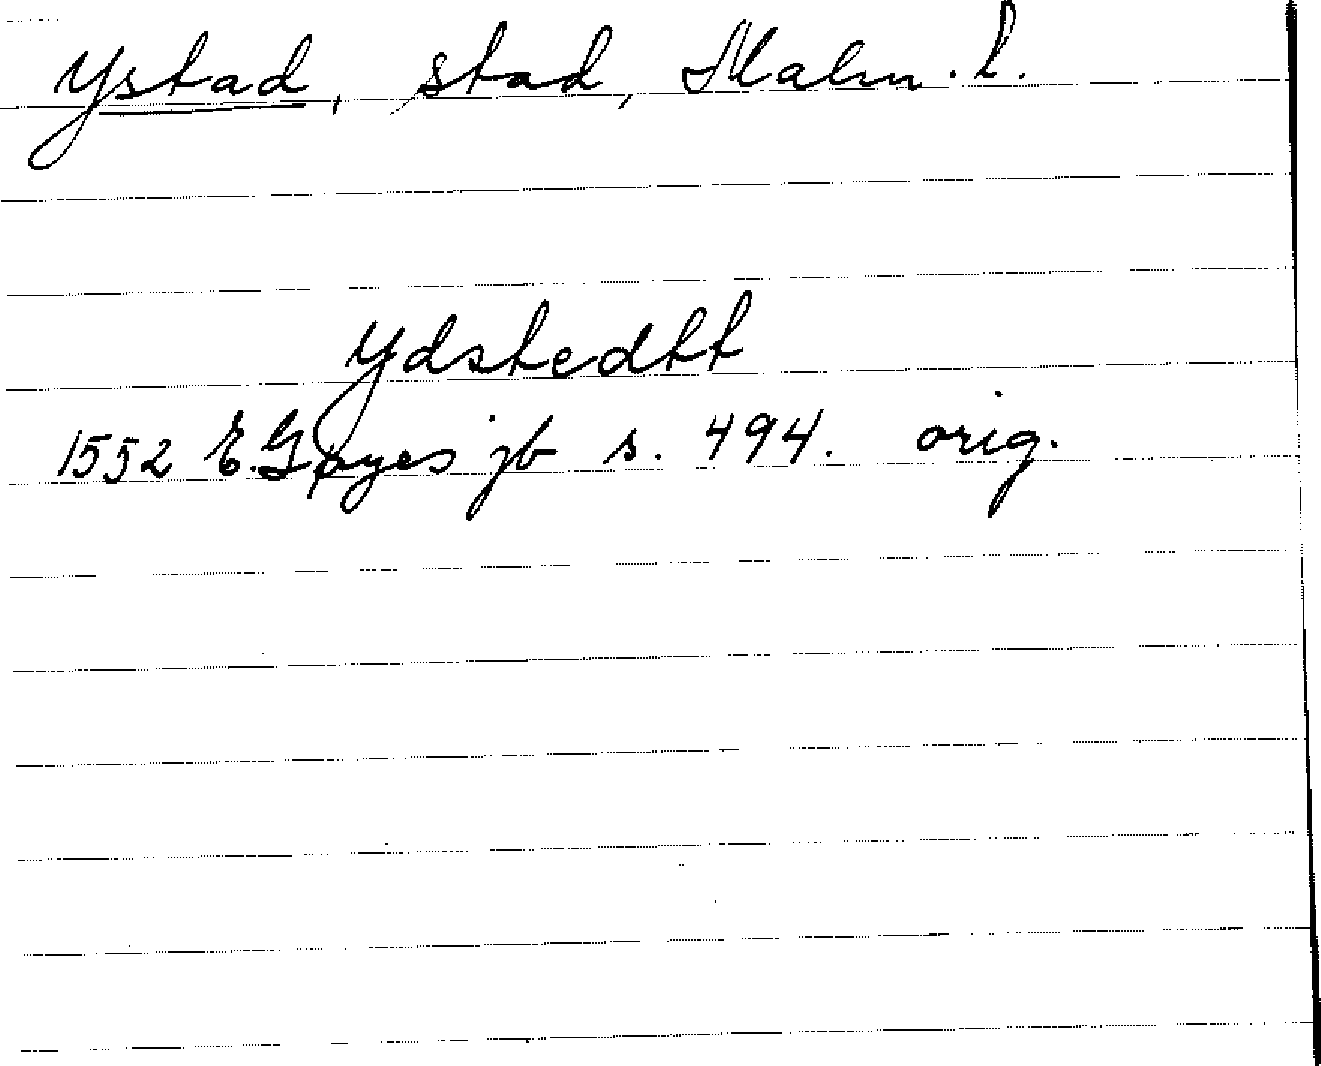 Ystad, stad, Malm. l.
Ydstedtt
1552 E. Gøyes jb s. 494. orig.